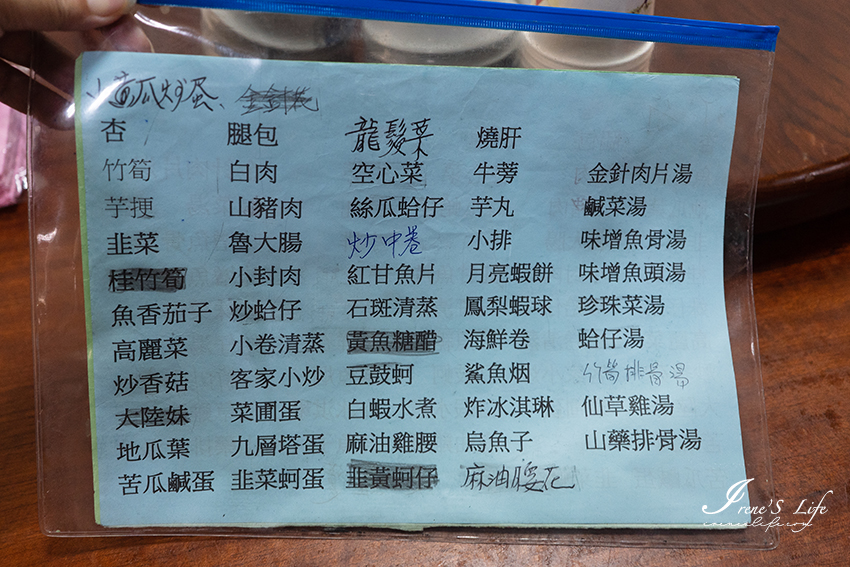 小黃瓜炒蛋、金針花
杏 腿包 龍鬚菜 燒肝
竹筍 白肉 空心菜 牛蒡 金針肉片湯
芋梗 山豬肉 絲瓜蛤仔 芋丸 鹹菜湯
韭菜 魯大腸 炒中卷 小排 味增魚骨湯
桂竹筍 小封肉 紅甘魚片 月亮蝦餅 味增魚頭湯
魚香茄子 炒蛤仔 石斑清蒸 鳳梨蝦球 珍珠菜湯
高麗菜 小卷清蒸 黃魚糖醋 海鮮卷 蛤仔湯
炒香菇 客家小炒 豆鼓蚵 鯊魚烟 竹筍排骨湯
大陸妹 菜圃蛋 白蝦水煮 炸冰淇琳 仙草雞湯
地瓜葉 九層塔蛋 麻油雞腰 烏魚子 山藥排骨湯
苦瓜鹹蛋 韭菜蚵蛋 韭黃蚵仔 麻油腰花
Irene'S Life